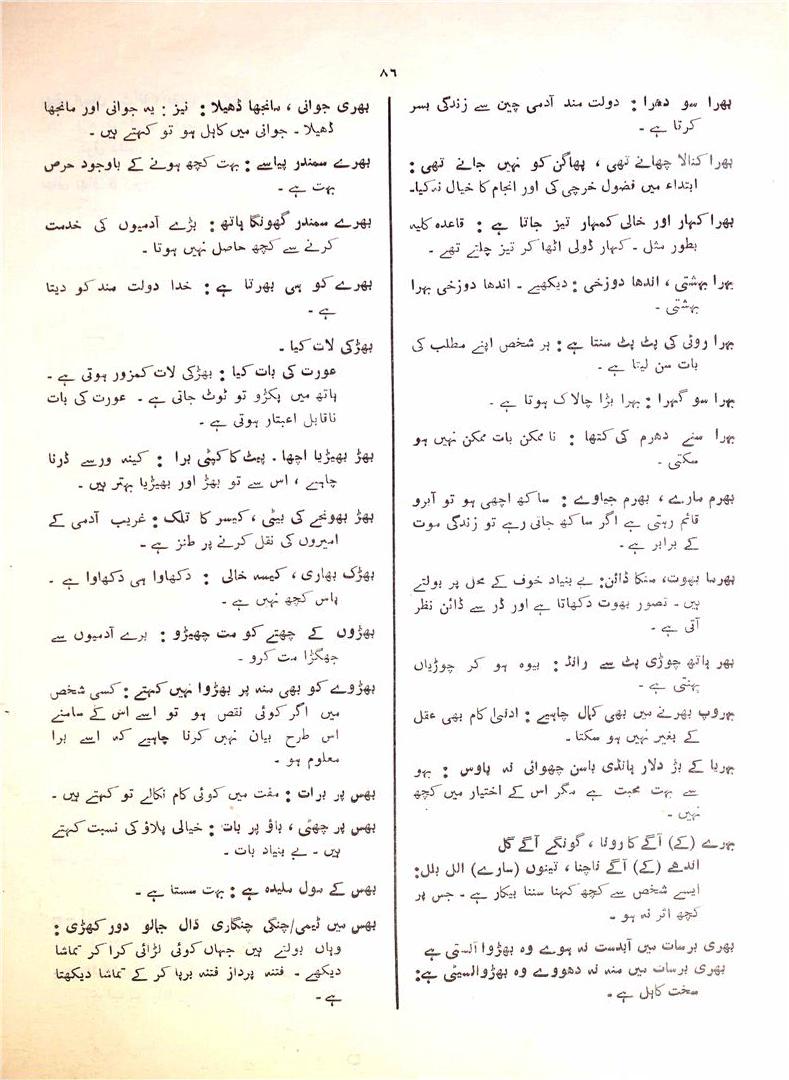 ۸٦
بھرا سو دھرا : دولت مند آدمی چین سے زندگی بسر
کرتا ہے ۔
بھرا کنالا چھانے تھی ، پھاگن کو نہیں جانے تھی :
ابتداء میں فضول خرچی کی اور انجام کا خیال نہ کیا۔
بھرا کہار اور خالی کمہار تیز جاتا ہے : قاعدہ کلیہ
بطور مثل ۔ کہار ڈولی اٹھا کر تیز چلتے تھے ۔
بہرا بہشتی ، اندھا دوزخی : دیکھیے ۔ اندھا دوزخی بہرا
بہشتی ۔
بہرا روٹی کی پٹ پٹ سنتا ہے : ہر شخص اپنے مطلب کی
بات سن لیتا ہے ۔
بہرا سو گہرا : بہرا بڑا چالاک ہوتا ہے ۔
بہرا سنے دھرم کی کتھا : نا ممکن بات ممکن نہیں ہو
سکتی ۔
بھرم مارے ، بھرم جیاوے : ساکھ اچھی ہو تو آبرو
قائم رہتی ہے اگر ساکھ جاتی رہے تو زندگی موت
کے برابر ہے ۔
بھرما بھوت، منکا ڈائن : بے بنیاد خوف کے محل پر بولتے
ہیں ۔ تصور بھوت دکھاتا ہے اور ڈر سے ڈائن نظر
آتی ہے ۔
بھر ہاتھ چوڑی پٹ سے رانڈ : بیوہ ہو کر چوڑیاں
پہنتی ہے ۔
بہروپ بھرنے میں بھی کمال چاہیے : ادنیٰ کام بھی عقل
کے بغیر نہیں ہو سکتا ۔
بہریا کے بڑ دلار ہانڈی باسن چھوائی نہ پاوس : بہو
سے بہت محبت ہے مگر اس کے اختیار میں کچھ
نہیں ۔
بہرے (کے) آگے کا رونا ، گونگے آگے گل
اندھے (کے) آگے ناچنا ، تینوں (سارے) الل بلل :
ایسے شخص سے کچھ کہنا سننا بیکار ہے ۔ جس پر
کچھ اثر نہ ہو ۔
بھری برسات میں آبدست نہ ہوے وہ بھڑوا آلستی ہے
بھری برسات میں منہ نہ دھووے وہ بھڑوالسیٹی ہے :
سخت کاہل ہے ۔
بھری جوانی ، مانجھا ڈھیلا : نیز : یہ جوانی اور مانجھا
ڈھیلا ۔ جوانی میں کاہل ہو تو کہتے ہیں ۔
بھرے سمندر پیاسے : بہت کچھ ہونے کے باوجود حرص
بہت ہے ۔
بھرے سمندر گھونگا ہاتھ : بڑے آدمیوں کی خدمت
کرنے سے کچھ حاصل نہیں ہوتا ۔
بھرے کو ہی بھرتا ہے : خدا دولت مند کو دیتا
ہے ۔
بھڑکی لات کیا ۔
عورت کی بات کیا : بھڑکی لات کمزور ہوتی ہے ۔
ہاتھ میں پکڑو تو ٹوٹ جاتی ہے ۔ عورت کی بات
ناقابل اعتبار ہوتی ہے ۔
بھڑ بھیڑیا اچھا ۔ پیٹ کا کپٹی برا : کینہ ورسے ڈرنا
چاہیے ، اس سے تو بھڑ اور بھیڑیا بہتر ہیں ۔
بھڑ بھونجے کی بیٹی ، کیسر کا تلک : غریب آدمی کے
امیروں کی نقل کرنے پر طنز ہے ۔
بھڑک بھاری ، کیسہ خالی : دکھاوا ہی دکھاوا ہے ۔
پاس کچھ نہیں ہے ۔
بھڑوں کے چھتے کو مت چھیڑو : برے آدمیوں سے
جھگڑا مت کرو ۔
بھڑوے کو بھی منہ پر بھڑوا نہیں کہتے : کسی شخص
میں اگر کوئی نقص ہو تو اسے اس کے سامنے
اس طرح بیان نہیں کرنا چاہیے کہ اسے برا
معلوم ہو ۔
بھس پر برات : مفت میں کوئی کام نکالے تو کہتے ہیں ۔
بھس پر چھٹی ، باؤ پر بات : خیالی پلاؤ کی نسبت کہتے
ہیں ۔ بے بنیاد بات ۔
بھس کے مول ملیدہ ہے : بہت سستا ہے ۔
بھس میں ٹیمی/چنگی چنگاری ڈال جمالو دور کھڑی :
وہاں بولتے ہیں جہاں کوئی لڑائی کرا کر تماشا
دیکھے ۔ فتنہ پرداز فتنہ برپا کر کے تماشا دیکھتا
ہے ۔